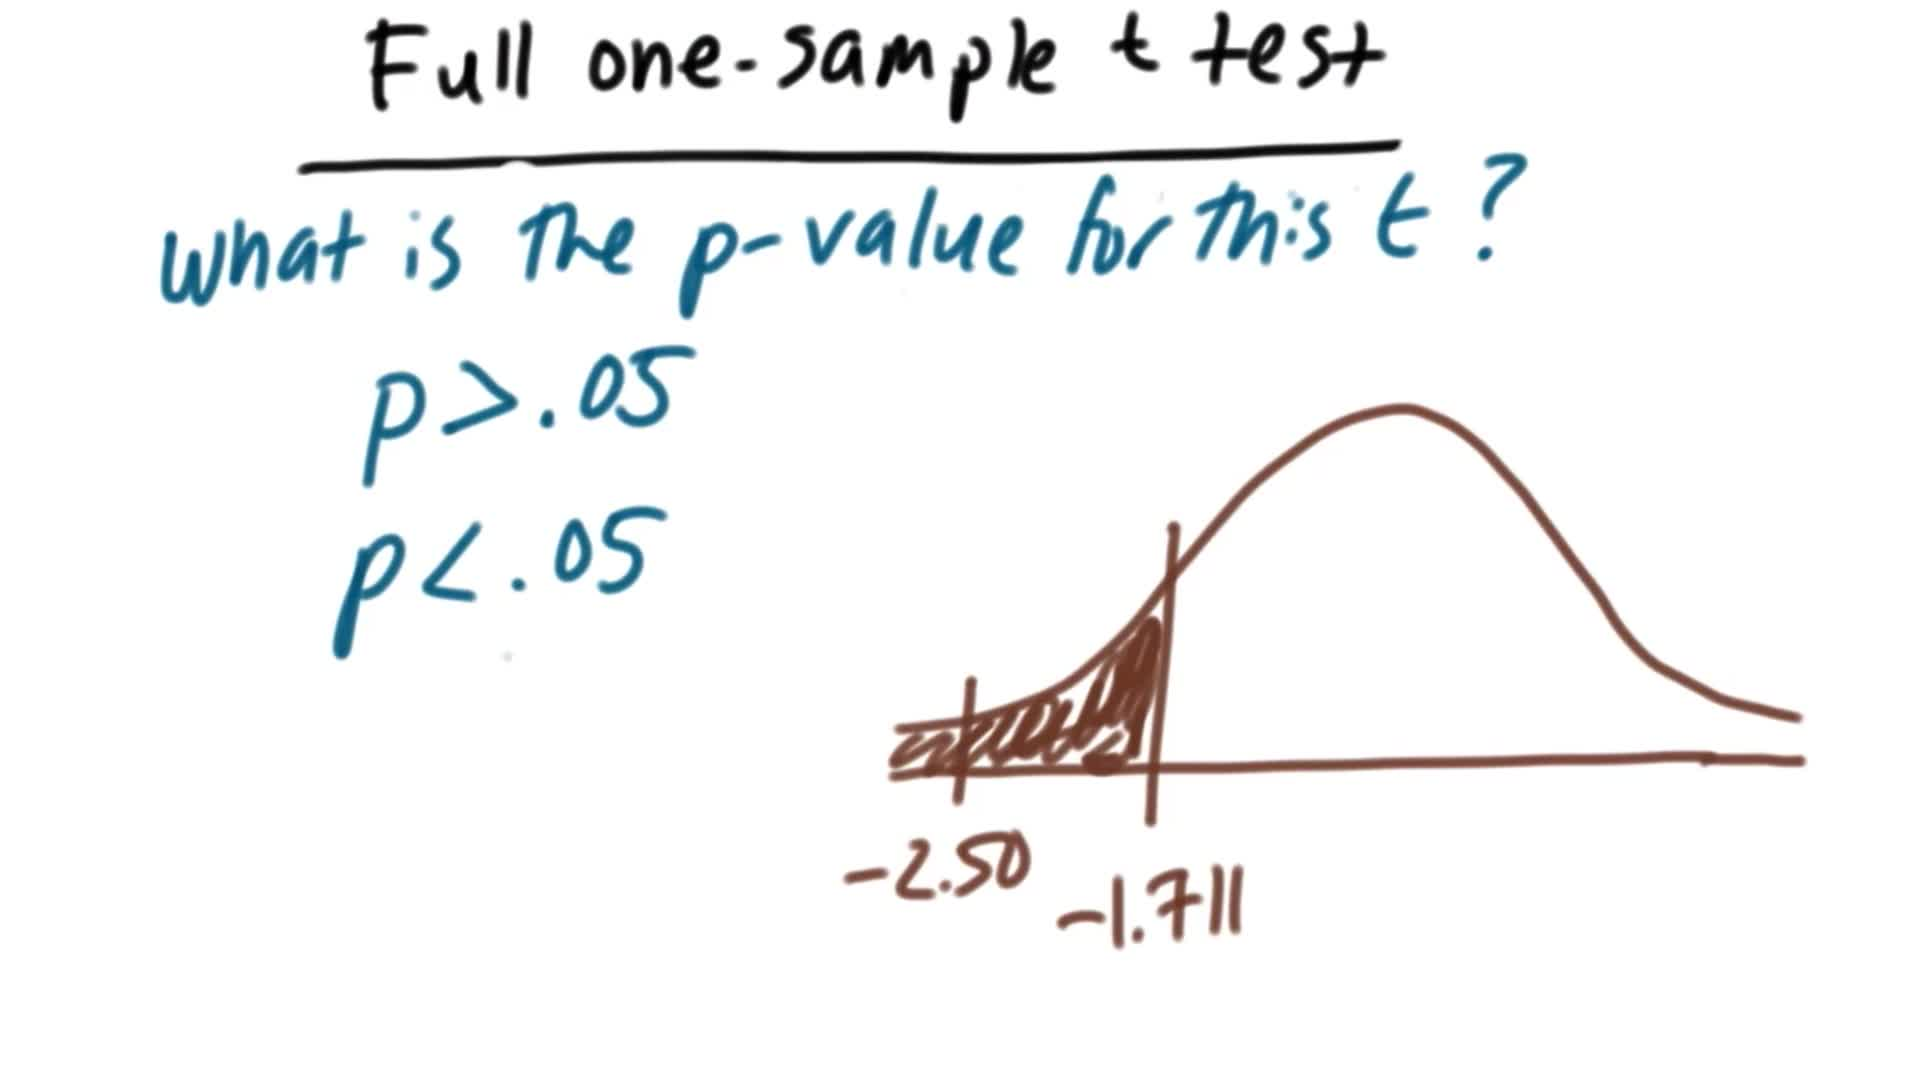 Full one-sample t test
What is the p-value for this t?
p > .05
p < .05
-2.50
-1.711